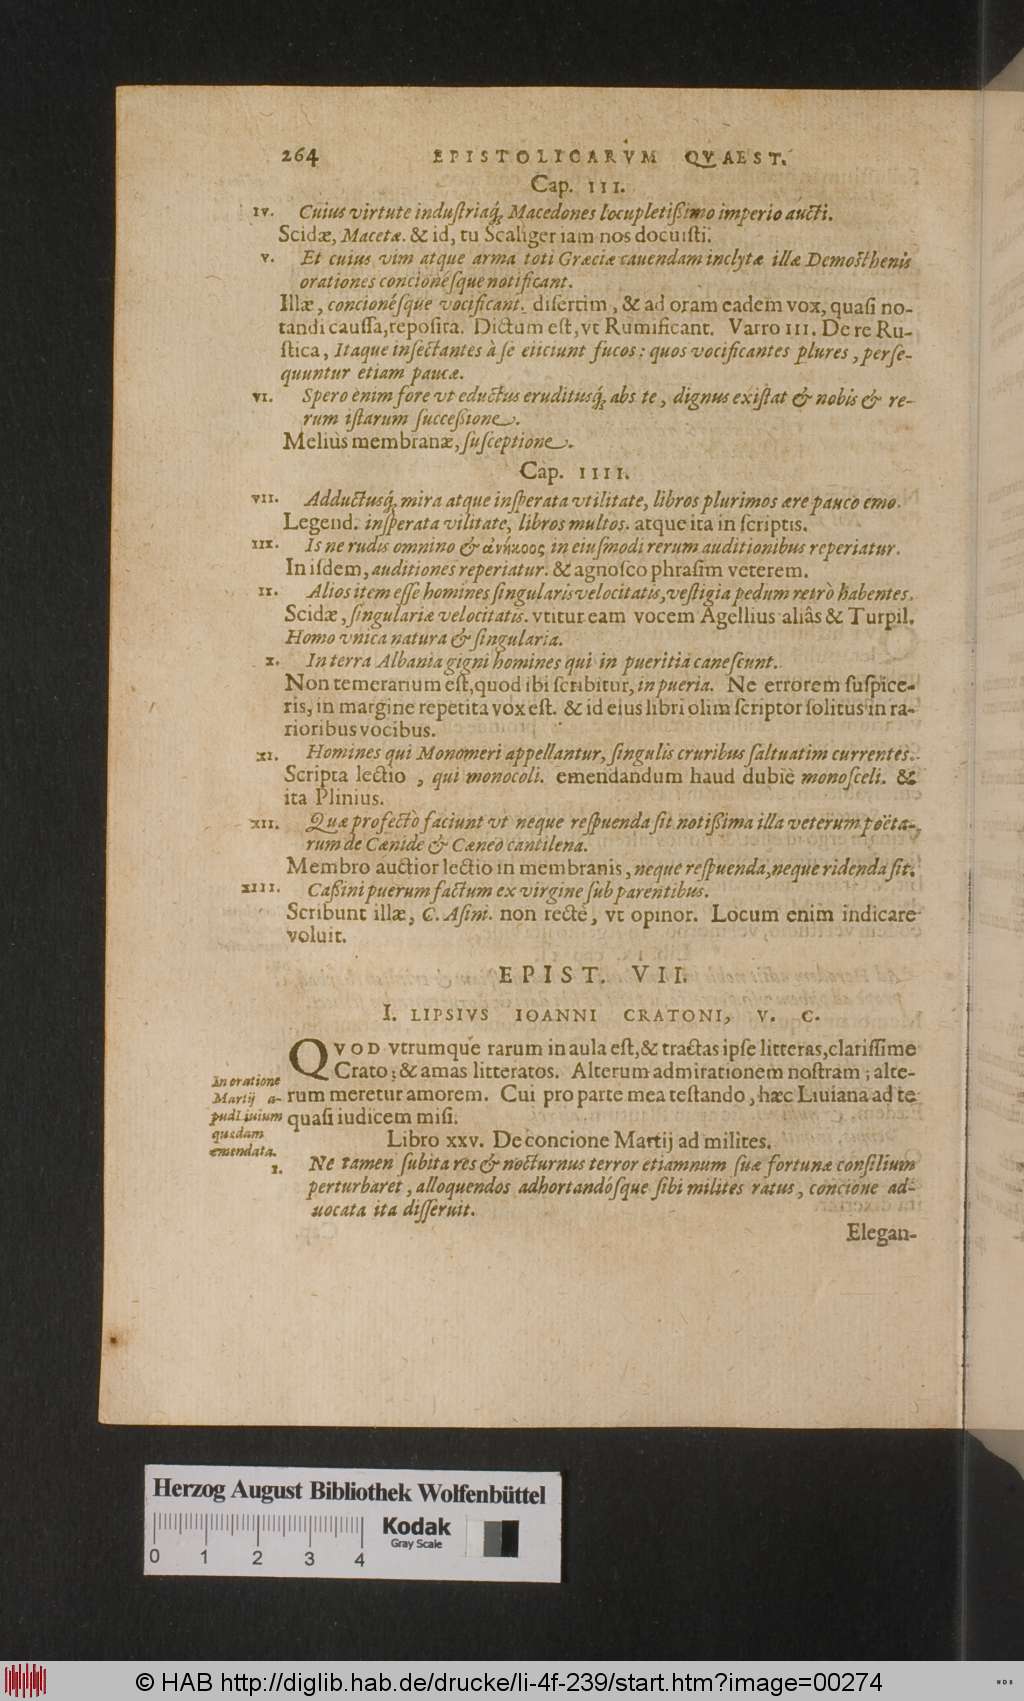 264 EPISTOLICARVM QVAEST.
Cap. III.
IV. Cuius virtute industriaq́; Macedones locupletißimo imperio aucti.
Scidæ, Macetæ. & id, tu Scaliger iam nos docuisti.
V. Et cuius vim atque arma toti Græciæ cauendam inclytæ illæ Demosthenis
orationes concionésque notificant.
Illæ, concionésque vocificant. disertim, & ad oram eadem vox, quasi no-
tandi caussa, reposita. Dictum est, vt Rumificant. Varro III. De re Ru-
stica, Itaque insectantes à se eiiciunt fucos: quos vocificantes plures, perse-
quuntur etiam paucæ.
VI. Spero enim fore vt eductus eruditusq́; abs te, dignus existat & nobis & re-
rum istarum succeßione.
Melius membranæ, susceptione.
Cap. IIII.
VII. Adductusq́; mira atque insperata vtilitate, libros plurimos ære pauco emo.
Legend. insperata vilitate, libros multos. atque ita in scriptis.
IIX. Is ne rudis omnino & ἀνήκοος in eiusmodi rerum auditionibus reperiatur.
In isdem, auditiones reperiatur. & agnosco phrasim veterem.
IX. Alios item esse homines singularis velocitatis, vestigia pedum retrò habentes.
Scidæ, singulariæ velocitatis. vtitur eam vocem Agellius aliâs & Turpil.
Homo vnica natura & singularia.
X. In terra Albania gigni homines qui in pueritia canescunt.
Non temerarium est, quod ibi scribitur, in pueria. Ne errorem suspice-
ris, in margine repetita vox est. & id eius libri olim scriptor solitus in ra-
rioribus vocibus.
XI. Homines qui Monomeri appellantur, singulis cruribus saltuatim currentes.
Scripta lectio, qui monocoli. emendandum haud dubiè monosceli. &
ita Plinius.
XII. Quæ profectò faciunt vt neque respuenda sit notißima illa veterum poëta-
rum de Cænide & Cæneo cantilena.
Membro auctior lectio in membranis, neque respuenda, neque ridenda sit.
XIII. Caßini puerum factum ex virgine sub parentibus.
Scribunt illæ, C. Asini. non rectè, vt opinor. Locum enim indicare
voluit.
EPIST. VII.
I. LIPSIVS IOANNI CRATONI, V. C.
QVOD vtrumque rarum in aula est, & tractas ipse litteras, clarissime
Crato; & amas litteratos. Alterum admirationem nostram; alte-
rum meretur amorem. Cui pro parte mea testando, hæc Liuiana ad te
quasi iudicem misi.
In oratione
Martij a-
pud Liuium
quædam
emendata.
Libro XXV. De concione Martij ad milites.
I. Ne tamen subita res & nocturnus terror etiamnum suæ fortunæ consilium
perturbaret, alloquendos adhortandósque sibi milites ratus, concione ad-
uocata ita disseruit.
Elegan-
Herzog August Bibliothek Wolfenbüttel
Kodak
Gray Scale
0 1 2 3 4
© HAB http://diglib.hab.de/drucke/li-4f-239/start.htm?image=00274